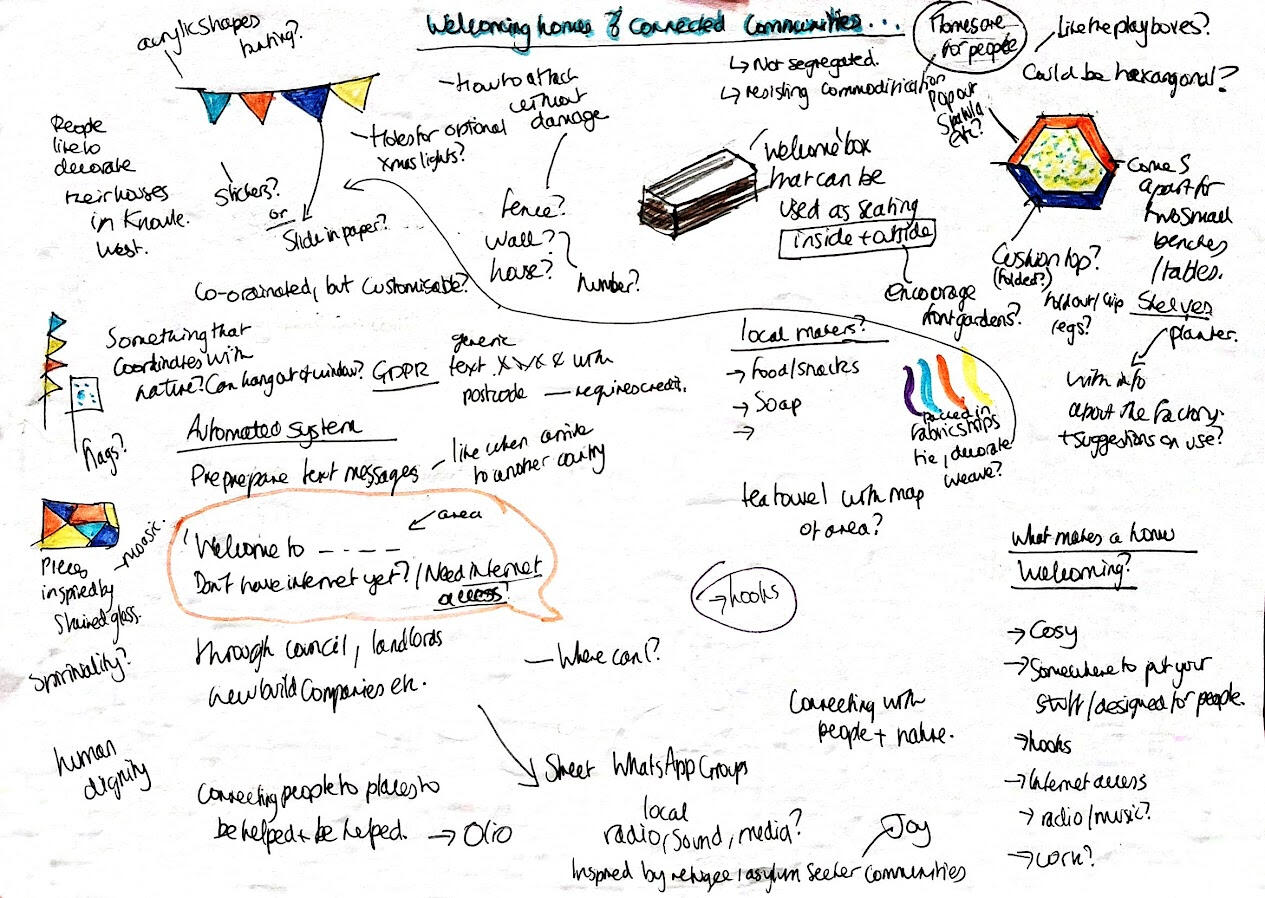 Welcoming homes & Connected Communities...
↳ Not segregated.
↳ resisting commodification
Homes are
for people
acrylic shapes
bunting?
People
like to
decorate
their houses
in Knowle
West.
Stickers?
or
Slide in paper?
- How to attach
without
damage
- Holes for optional
xmas lights?
fence?
wall?
house?
number?
Co-ordinated, but customisable?
Welcome box
that can be
used as seating
inside + outside
encourage
front gardens?
Like the play boxes?
Could be hexangonal?
Pop out
etc?
Comes
apart for
two small
benches
/tables.
Cushion top?
(folded?)
fold out/clip
legs?
Shelves
planter.
with info
about the factory
+ suggestions on use?
Something that
coordinates with
nature? Can hang out of window?
flags?
GDPR
generic
text XXXX with
postcode — requires credit.
Automated system
Preprepare text messages
like when arrive
to another country
area
'Welcome to - - - -
Don't have internet yet? / Need internet
access?
through council, landlords
new build companies etc.
- Where can I?
Pieces
inspired by
Stained glass.
mosaic.
Spirituality?
human
dignity
local makers?
→ Food/snacks
→ Soap
→
packed in
fabric strips
tie, decorate
weave?
tea towel with map
of area?
→ hooks
What makes a home
Welcoming?
→ Cosy
→ Somewhere to put your
stuff/designed for people.
→ hooks
→ Internet access
→ radio/music?
→ work?
Connecting with
people + nature.
Connecting people to places to
be helped + be helped. → Olio
Street WhatsApp Groups
local
radio, sound, media?
Joy
Inspired by refugee/asylum seeker communities